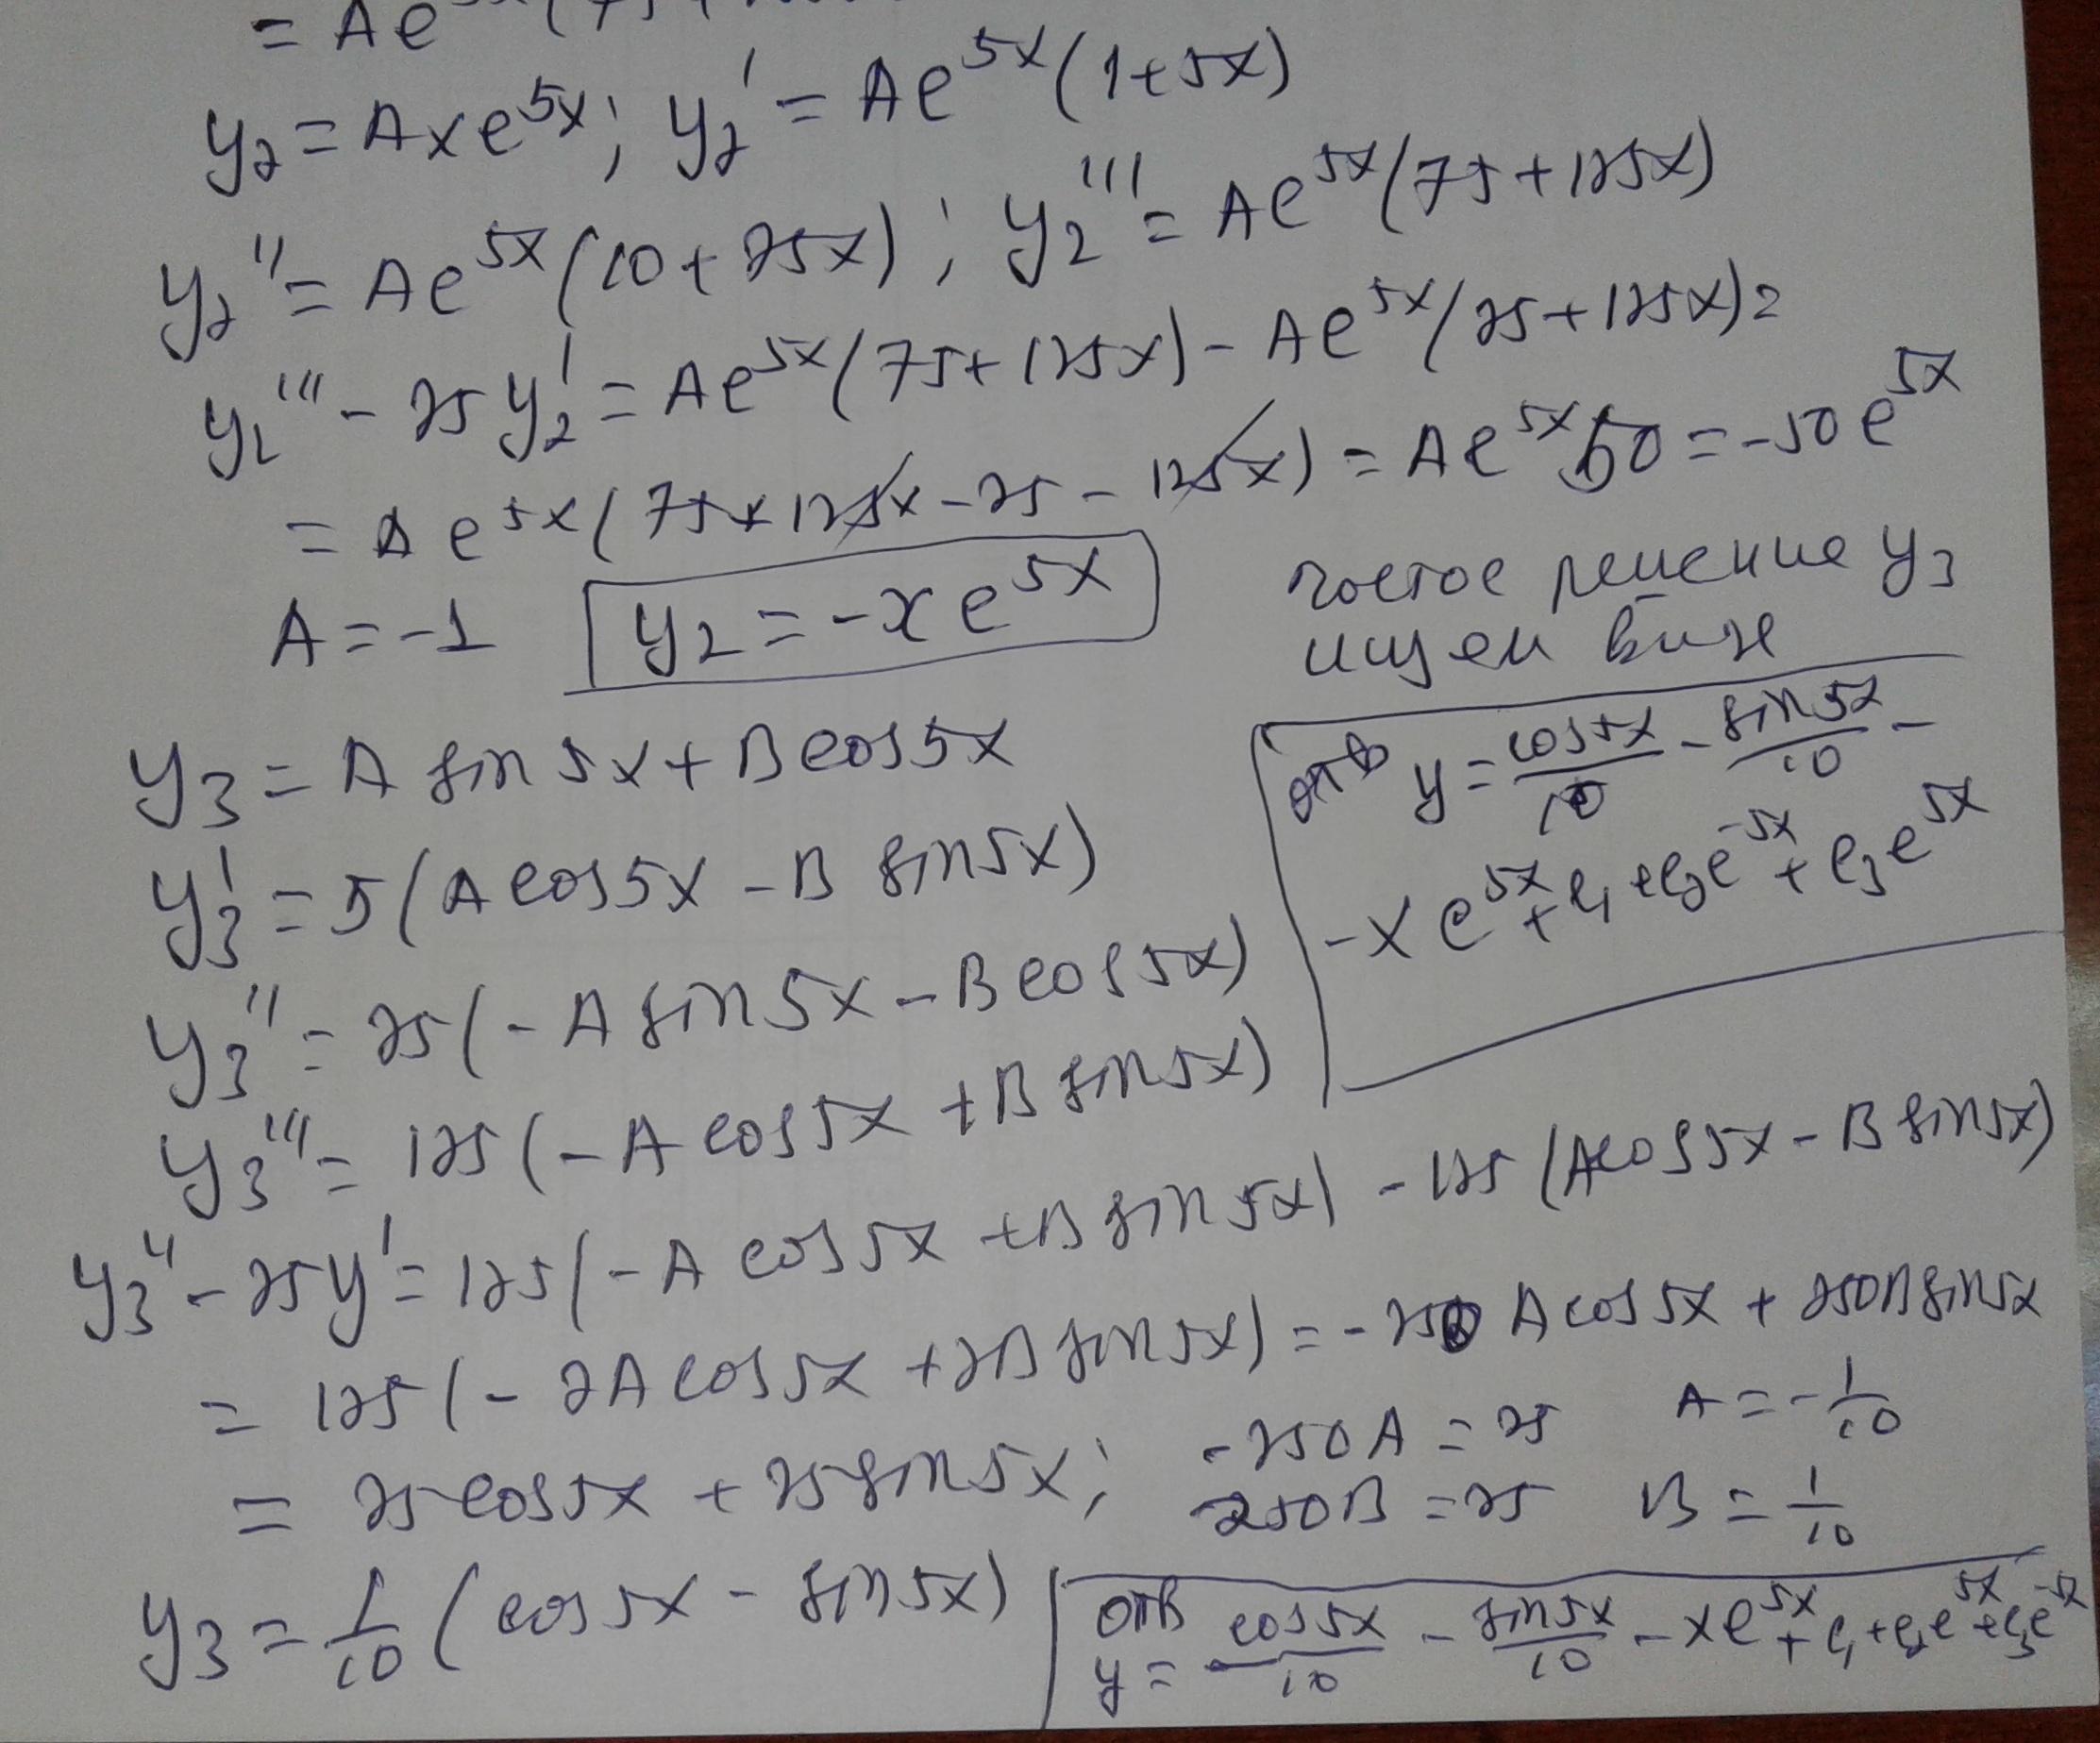 = Ae
y₂ = Axe⁵ˣ; y₂' = Ae⁵ˣ(1+5x)
y₂'' = Ae⁵ˣ(10+25x); y₂''' = Ae⁵ˣ(75+125x)
y₂''' - 25y₂' = Ae⁵ˣ(75+125x) - Ae⁵ˣ(25+125x) =
= Ae⁵ˣ(75+125x-25-125x) = Ae⁵ˣ50 = -50e⁵ˣ
A = -1 y₂ = -xe⁵ˣ
частое решение y₃
ищем виде
y₃ = A sin5x + B cos5x
y₃' = 5(A cos5x - B sin5x)
отв y = cos5x/10 - sin5x/10 -
- xe⁵ˣ + c₁ + c₂e⁻⁵ˣ + c₃e⁵ˣ
y₃'' = 25(-A sin5x - B cos5x)
y₃''' = 125(-A cos5x + B sin5x)
y₃'' - 25y' = 125(-A cos5x + B sin5x) - 125(A cos5x - B sin5x)
= 125(-2A cos5x + 2B sin5x) = -250 A cos5x + 250B sin5x
= 25 cos5x + 25 sin5x; -250A = 25 A = -1/10
250B = 25 B = 1/10
y₃ = 1/10 (cos5x - sin5x)
отв
y = cos5x/10 - sin5x/10 - xe⁵ˣ + c₁ + c₂e⁵ˣ + c₃e⁻⁵ˣ